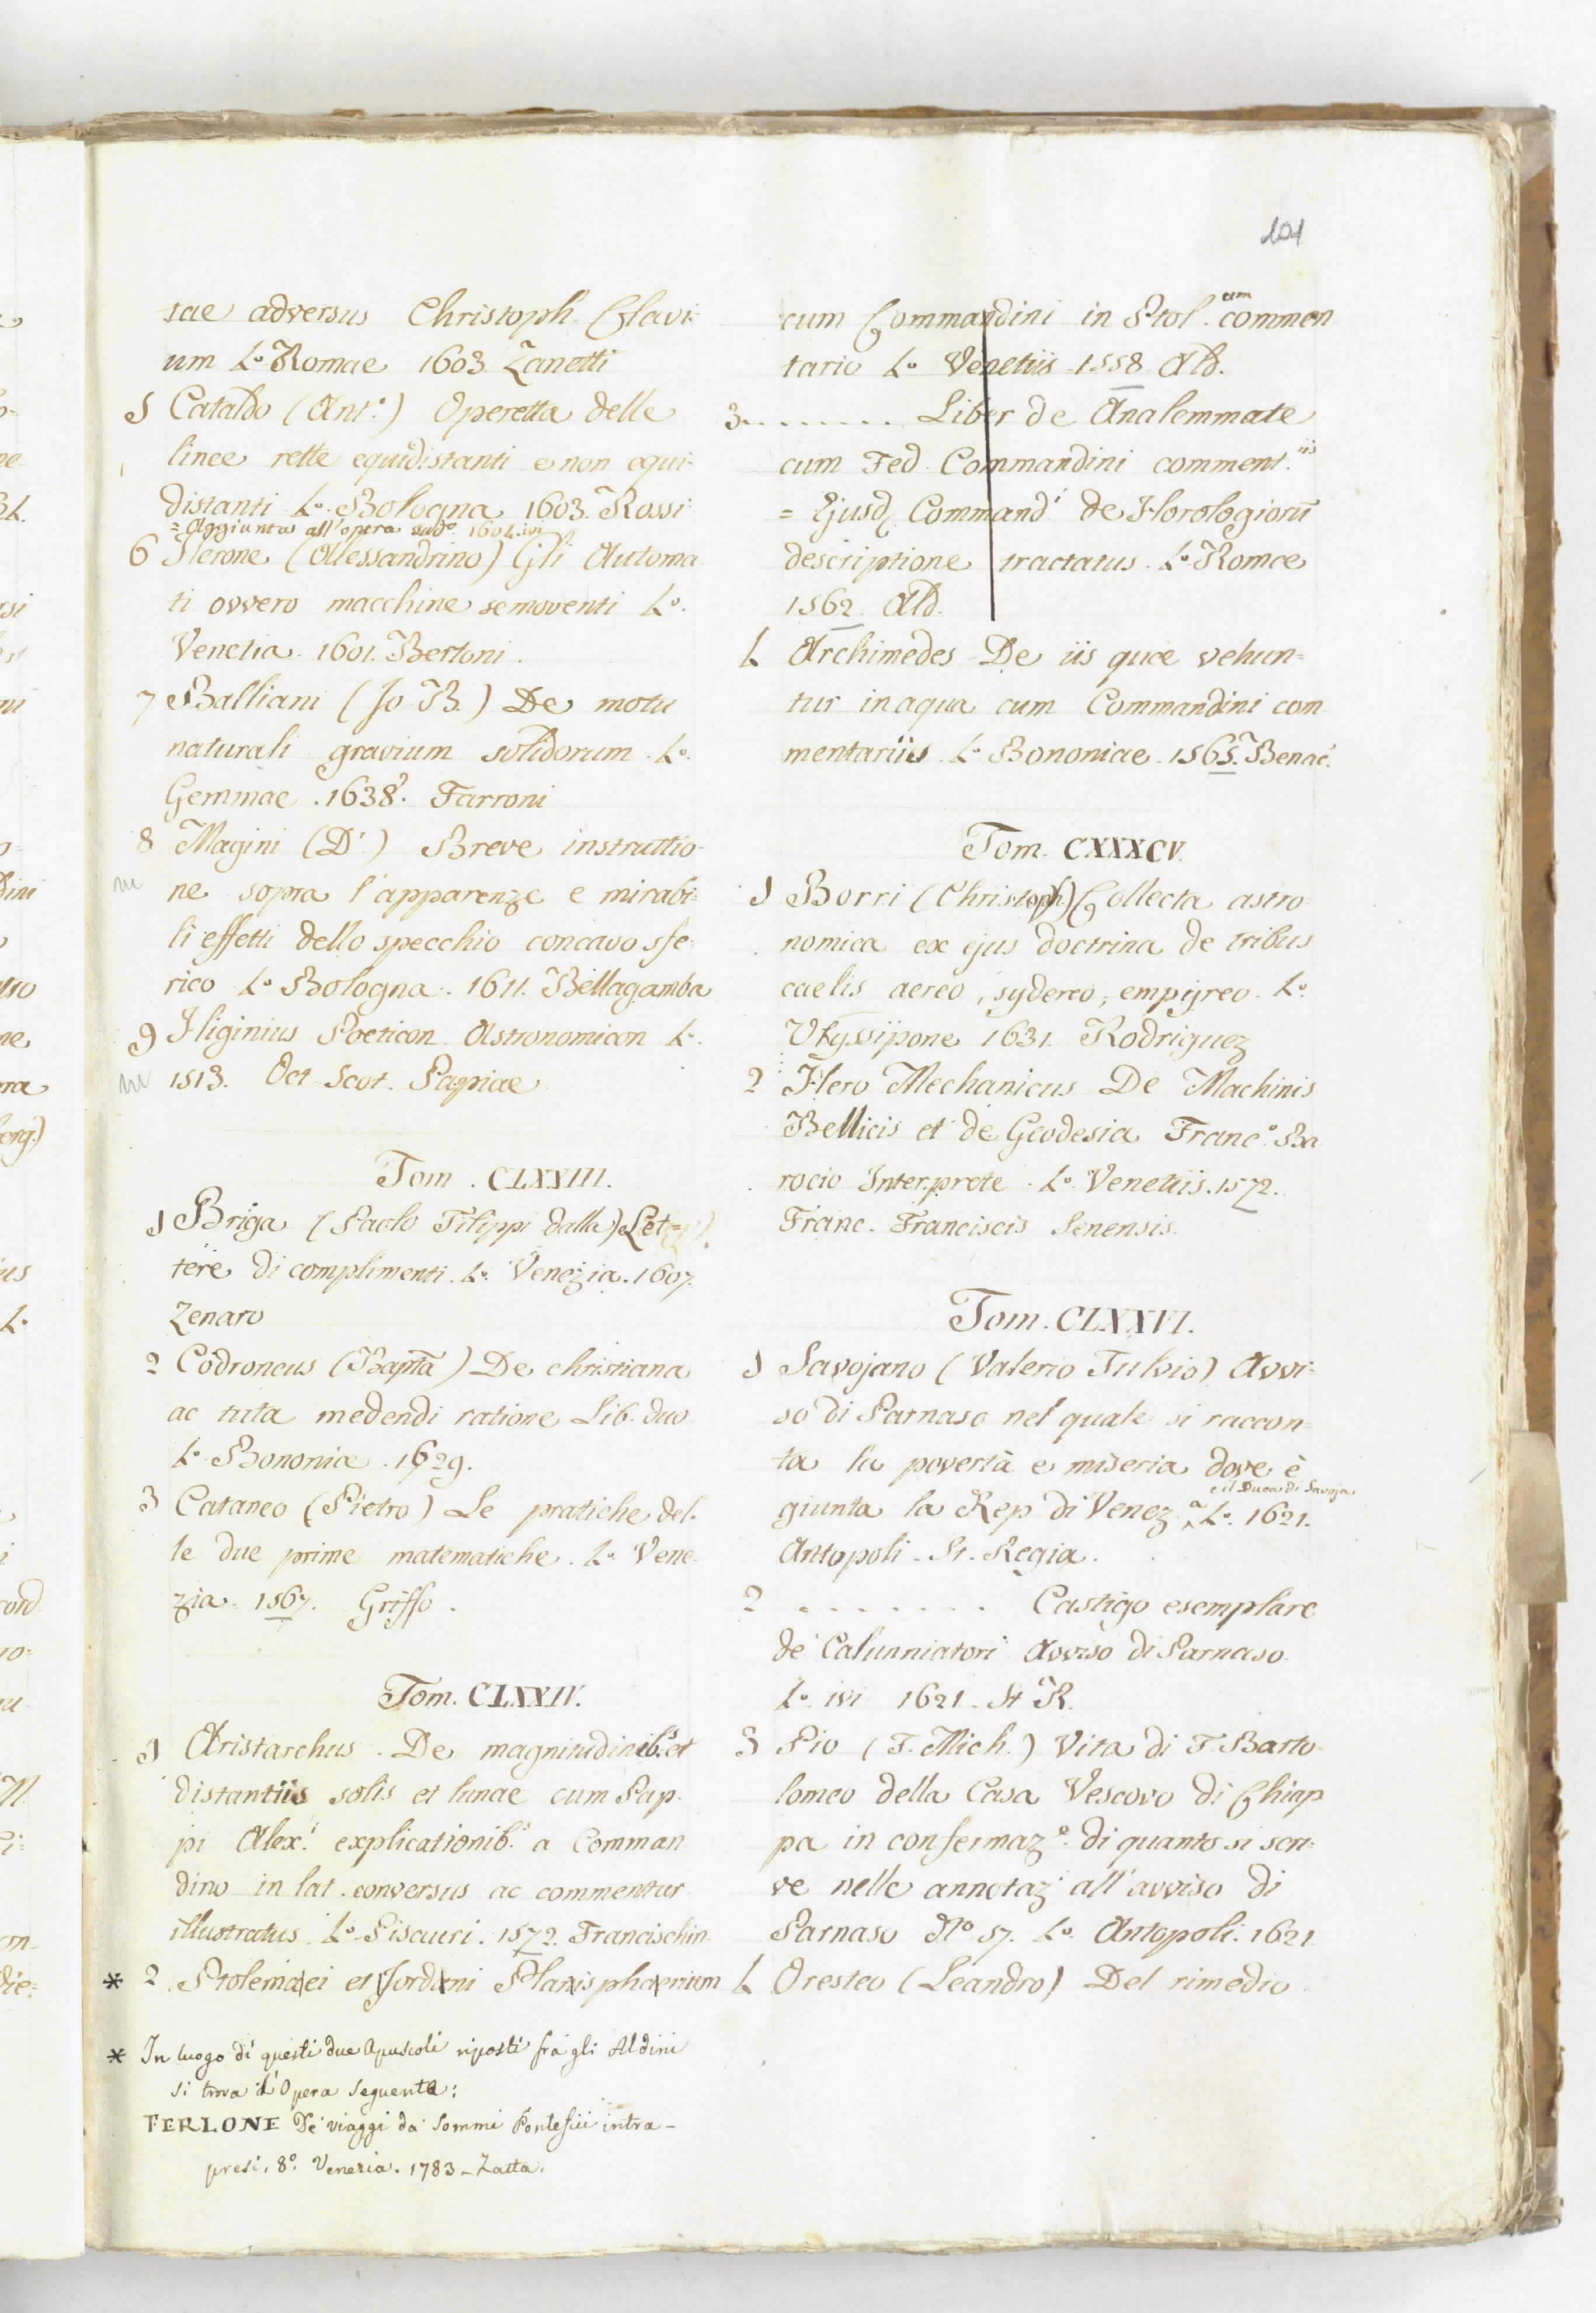 101
sae adversus Christoph. Clavi-
um 4.º Romae 1603. Zanetti
5 Cataldo (Ant.º) Operetta delle
linee rette equidistanti e non equi-
distanti 4.º Bologna 1603. Rossi
= Aggiunta all'opera sudº 1604. ivi
6 Herone (Allessandrino) Gli Automa
ti ovvero macchine semoventi 4.º
Venetia. 1601. Bertoni.
7 Balliani (Jo B.) De motu
naturali gravium solidorum. 4.º
Gemmae. 1638. Farroni
8 Magini (D.) Breve instruttio-
ne sopra l'apparenze e mirabi-
li effetti dello specchio concavo sfe-
rico 4.º Bologna. 1611. Bellagamba
9 Higinius Poeticon Astronomicon 4.
1513. Oct. Scot. Papiae
Tom. CLXXIII.
1 Briga (Paolo Filippi dalla) Let-
tere di complimenti. 4.º Venezia. 1607.
Zenaro
2 Codroncus (Bapta) De christiana
ac tuta medendi ratione Lib. duo
4.º Bononiae. 1629.
3 Cataneo (Pietro) Le pratiche del-
le due prime matematiche. 4.º Vene-
zia. 1567. Griffo.
Tom. CLXXIV.
1 Aristarchus. De magnitudinib.s et
distantiis solis et lunae cum Pap-
pi Alex.i explicationib.s a Comman
dino in lat. conversus ac commentar
illustratus. 4.º Pisauri. 1572. Francischin
* 2. Ptolemaei et Jordani Planisphaerium
* In luogo di questi due Opuscoli riposti fra gli Aldini
si trova l'Opera seguente:
FERLONE De' viaggi da' Sommi Pontefici intra-
presi, 8.º Venezia. 1783 - Zatta.
cum Commandini in Ptol.am commen
tario 4.º Venetiis 1558 Ald.
3. . . . . . . . . Liber de Analemmate
cum Fed. Commandini comment.iis
= Ejusd. Command.i de Horologiorū
descriptione tractatus. 4.º Romae
1562 Ald.
4 Archimedes De iis quae vehun=
tur in aqua cum Commandini com
mentariis. 4.º Bononiae. 1565. Benac.
Tom. CXXXCV.
1 Borri (Christoph.) Collecta astro
nomica ex ejus doctrina de tribus
caelis aereo, sydereo, empyreo. 4.º
Ulyssipone 1631. Rodriguez
2 Hero Mechanicus De Machinis
Bellicis et de Geodesia Franc.º Ba
rocio Interprete. 4.º Venetiis. 1572.
Franc. Franciscis Senensis.
Tom. CLXXVI.
1 Savojano (Valerio Fulvio) Avvi=
so di Parnaso nel quale si raccon=
ta la povertà e miseria dove è
e il Duca di Savoja
giunta la Rep di Venez.a 4.º 1621.
Antopoli. St. Regia.
2 . . . . . . . Castigo esemplare
de' Calunniatori Avviso di Parnaso
4.º ivi 1621. St R.
3 Pio (F. Mich.) Vita di F. Barto-
lomeo della Casa Vescovo di Chiap
pa in confermaz.e di quanto si scri=
ve nelle annotaz.i all'avviso di
Parnaso Nº 57. 4.º Antopoli. 1621
4 Oresteo (Leandro) Del rimedio